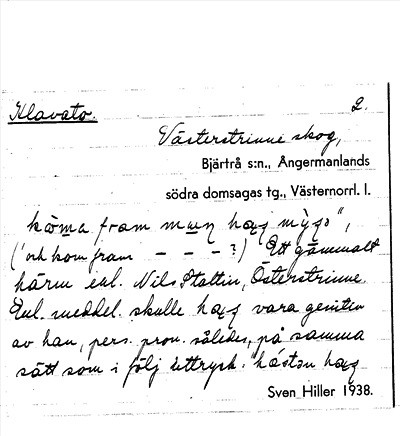 Klavato. 2.
Västerstrinne skog,
Bjärtrå s:n., Ångermanlands
södra domsagas tg., Västernorrl. l.
köma fram mun has mỳgo",
('och kom fram – – – ?) Ett gammalt
härm enl. Nils Stattin, Österstrinne.
Enl. meddel. skulle has vara genitiv
av han, pers. pron. således, på samma
sätt som i följ. uttryck. "hästen has
Sven Hiller 1938.